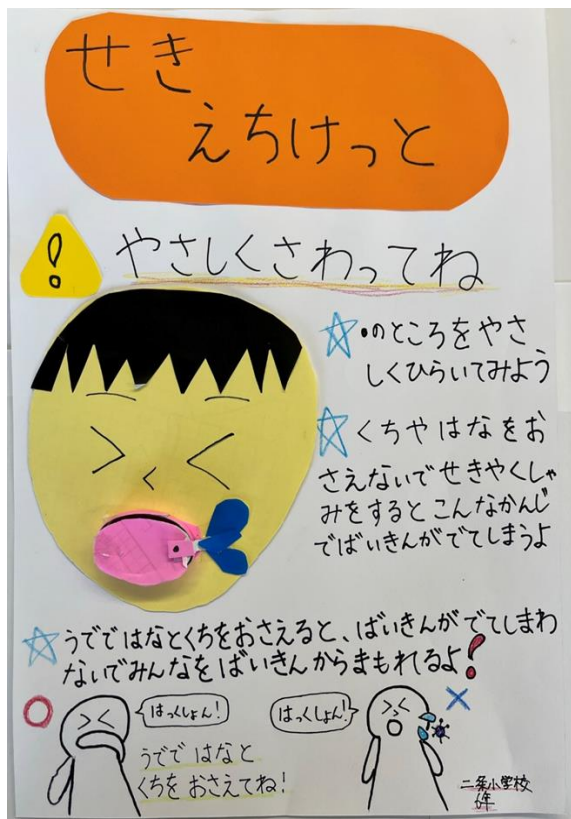 せき
えちけっと
!
やさしくさわってね
☆・のところをやさ
しくひらいてみよう
☆くちやはなをお
さえないでせきやくしゃ
みをするとこんなかんじ
でばいきんがでてしまうよ
☆うでではなとくちをおさえると、ばいきんがでてしまわ
ないでみんなをばいきんからまもれるよ!
○
はっくしょん!
うでで はなと
くちを おさえてね!
はっくしょん!
×
二条小学校
6年